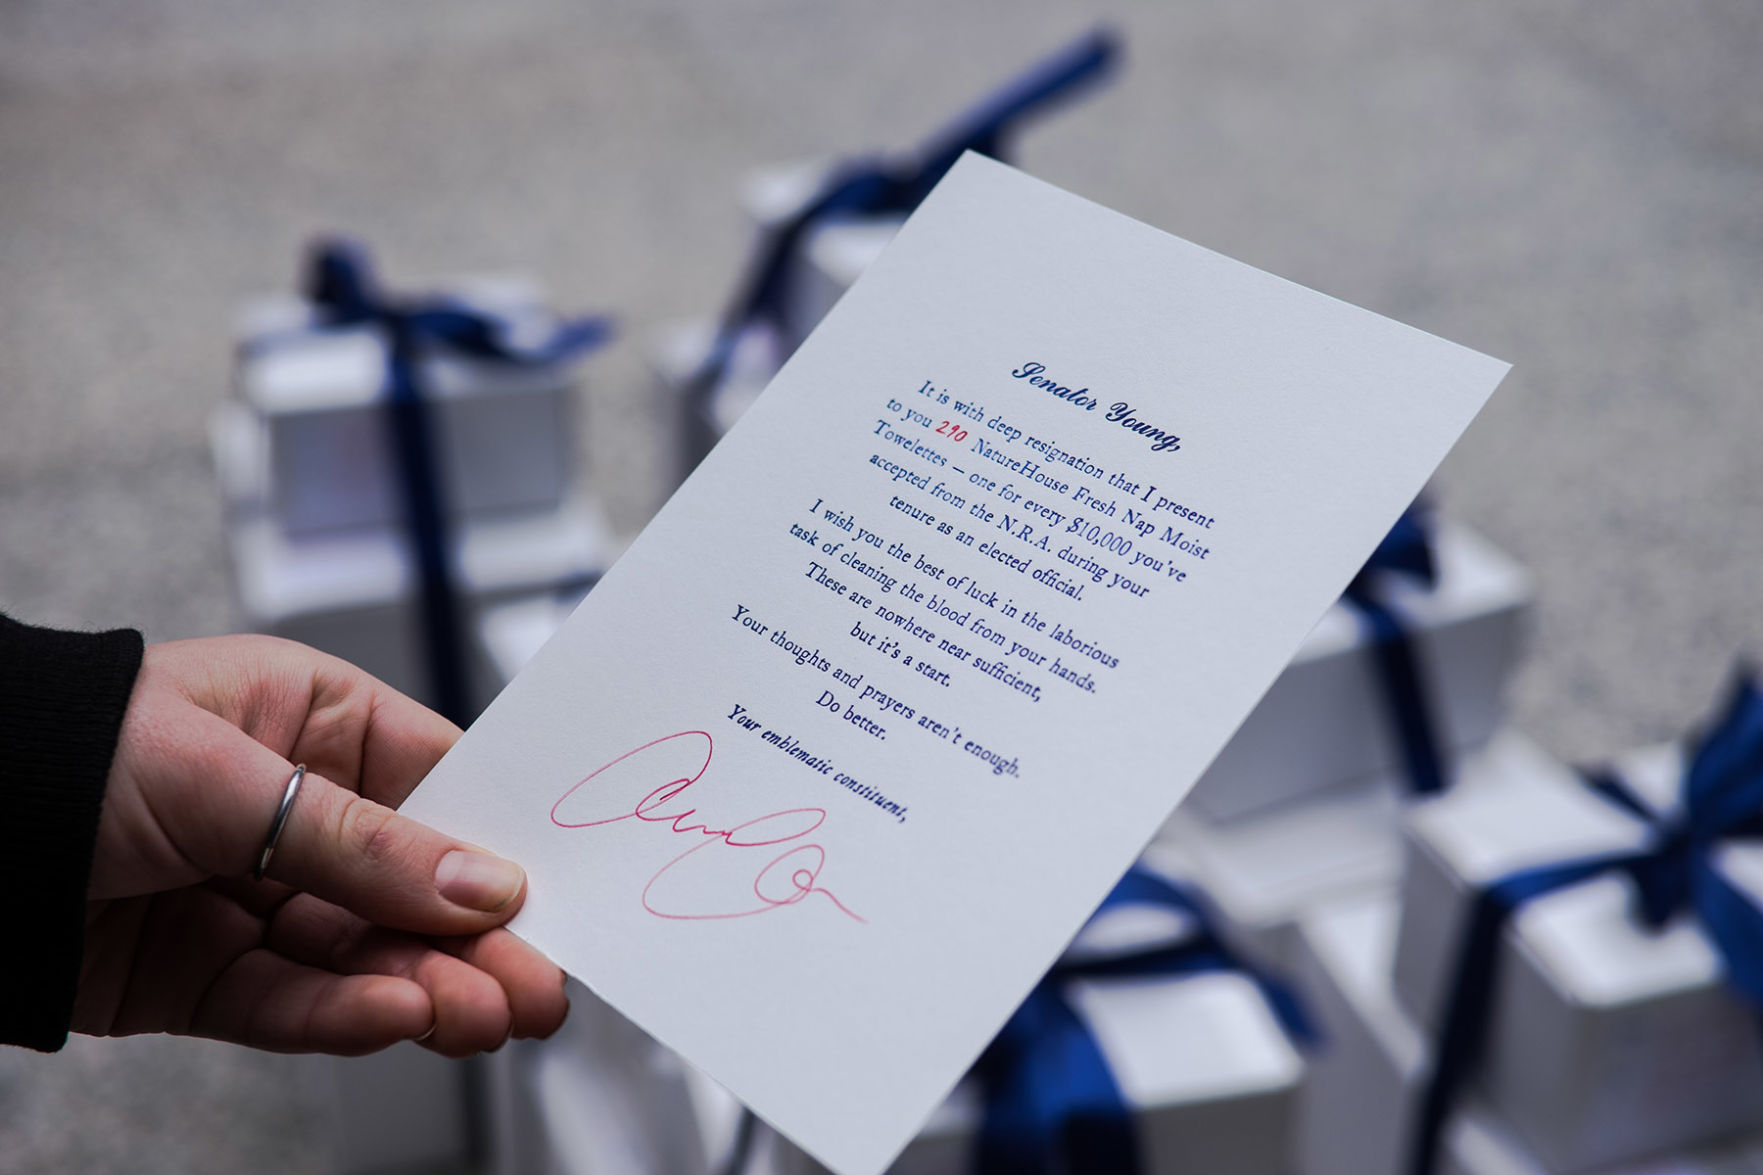 Senator Young,
It is with deep resignation that I present
to you 290 NatureHouse Fresh Nap Moist
Towelettes — one for every $10,000 you've
accepted from the N.R.A. during your
tenure as an elected official.
I wish you the best of luck in the laborious
task of cleaning the blood from your hands.
These are nowhere near sufficient,
but it's a start.
Your thoughts and prayers aren't enough.
Do better.
Your emblematic constituent,